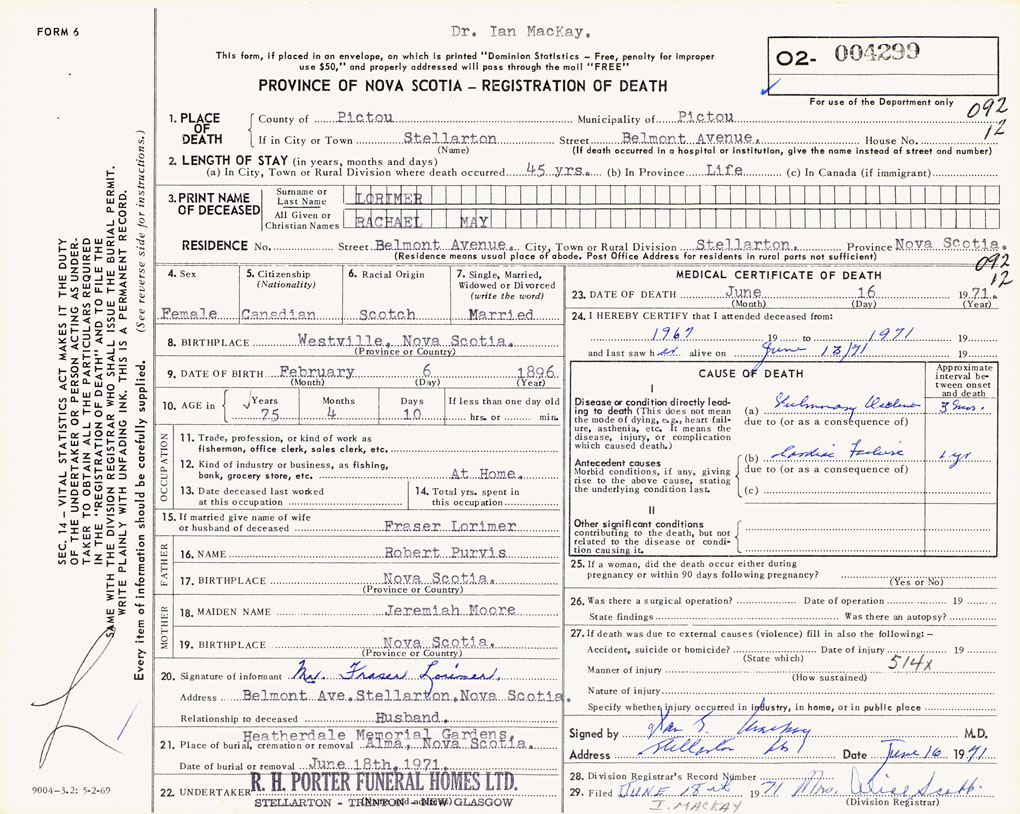 FORM 6
Dr. Ian MacKay.
This form, if placed in an envelope, on which is printed "Dominion Statistics – Free, penalty for improper
use $50," and properly addressed will pass through the mail "FREE"
PROVINCE OF NOVA SCOTIA – REGISTRATION OF DEATH
02- 004299
For use of the Department only
092
12
1. PLACE OF DEATH County of Pictou Municipality of Pictou
If in City or Town Stellarton Street Belmont Avenue. House No.
(Name) (If death occurred in a hospital or institution, give the name instead of street and number)
2. LENGTH OF STAY (in years, months and days)
(a) In City, Town or Rural Division where death occurred 45 yrs. (b) In Province Life (c) In Canada (if immigrant)
3. PRINT NAME OF DECEASED
Surname or Last Name LORIMER
All Given or Christian Names RACHAEL MAY
RESIDENCE No. Street Belmont Avenue. City, Town or Rural Division Stellarton. Province Nova Scotia.
(Residence means usual place of abode. Post Office Address for residents in rural parts not sufficient)
092
12
4. Sex
Female
5. Citizenship
(Nationality)
Canadian
6. Racial Origin
Scotch
7. Single, Married,
Widowed or Divorced
(write the word)
Married
8. BIRTHPLACE Westville, Nova Scotia.
(Province or Country)
9. DATE OF BIRTH February 6 1896
(Month) (Day) (Year)
10. AGE in Years Months Days If less than one day old
75 4 10 hrs. or min.
OCCUPATION
11. Trade, profession, or kind of work as
fisherman, office clerk, sales clerk, etc.
12. Kind of industry or business, as fishing,
bank, grocery store, etc. At Home.
13. Date deceased last worked
at this occupation
14. Total yrs. spent in
this occupation
15. If married give name of wife
or husband of deceased Fraser Lorimer
FATHER
16. NAME Robert Purvis
17. BIRTHPLACE Nova Scotia.
(Province or Country)
MOTHER
18. MAIDEN NAME Jeremiah Moore
19. BIRTHPLACE Nova Scotia.
(Province or Country)
20. Signature of informant Mr. Fraser Lorimer.
Address Belmont Ave. Stellarton, Nova Scotia.
Relationship to deceased Husband.
Heatherdale Memorial Gardens,
21. Place of burial, cremation or removal Alma, Nova Scotia.
Date of burial or removal June 18th, 1971.
22. UNDERTAKER R. H. PORTER FUNERAL HOMES LTD.
STELLARTON - TRENTON - NEW GLASGOW
MEDICAL CERTIFICATE OF DEATH
23. DATE OF DEATH June 16 1971.
(Month) (Day) (Year)
24. I HEREBY CERTIFY that I attended deceased from:
1967 19 to 1971 19
and last saw her alive on June 13/71 19
CAUSE OF DEATH
Approximate
interval be-
tween onset
and death
I
Disease or condition directly lead-
ing to death (This does not mean
the mode of dying, e.g., heart fail-
ure, asthenia, etc. It means the
disease, injury, or complication
which caused death.)
(a) Pulmonary 3 mos.
due to (or as a consequence of)
Antecedent causes
Morbid conditions, if any, giving
rise to the above cause, stating
the underlying condition last.
(b) Cardiac Failure 1 yr
due to (or as a consequence of)
(c)
II
Other significant conditions
contributing to the death, but not
related to the disease or condi-
tion causing it.
25. If a woman, did the death occur either during
pregnancy or within 90 days following pregnancy?
(Yes or No)
26. Was there a surgical operation? Date of operation 19
State findings Was there an autopsy?
27. If death was due to external causes (violence) fill in also the following: –
Accident, suicide or homicide? Date of injury 19
(State which)
514x
Manner of injury
(How sustained)
Nature of injury
Specify whether injury occurred in industry, in home, or in public place
Signed by M.D.
Address Stellarton NS Date June 16 1971
28. Division Registrar's Record Number
29. Filed JUNE 18th 1971 Mrs. Alice
(Division Registrar)
I. MACKAY
SEC. 14 – VITAL STATISTICS ACT MAKES IT THE DUTY
OF THE UNDERTAKER OR PERSON ACTING AS UNDER-
TAKER TO OBTAIN ALL THE PARTICULARS REQUIRED
IN THE "REGISTRATION OF DEATH" AND TO FILE THE
SAME WITH THE DIVISION REGISTRAR WHO SHALL ISSUE THE BURIAL PERMIT.
WRITE PLAINLY WITH UNFADING INK. THIS IS A PERMANENT RECORD.
Every item of information should be carefully supplied. (See reverse side for instructions.)
9004–3.2: 5-2-69